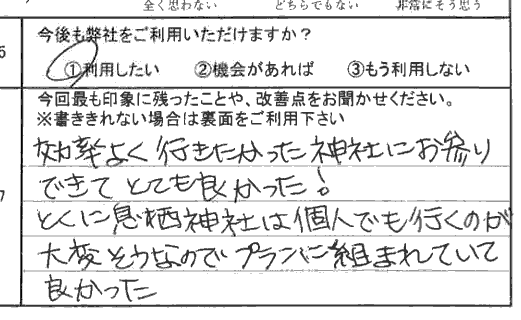 全く思わない どちらでもない 非常にそう思う
今後も弊社をご利用いただけますか？
①利用したい ②機会があれば ③もう利用しない
今回最も印象に残ったことや、改善点をお聞かせください。
※書ききれない場合は裏面をご利用下さい
効率よく行きたかった神社にお参り
できてとても良かった！
とくに息栖神社は個人でも行くのが
大変そうなのでプランに組まれていて
良かった